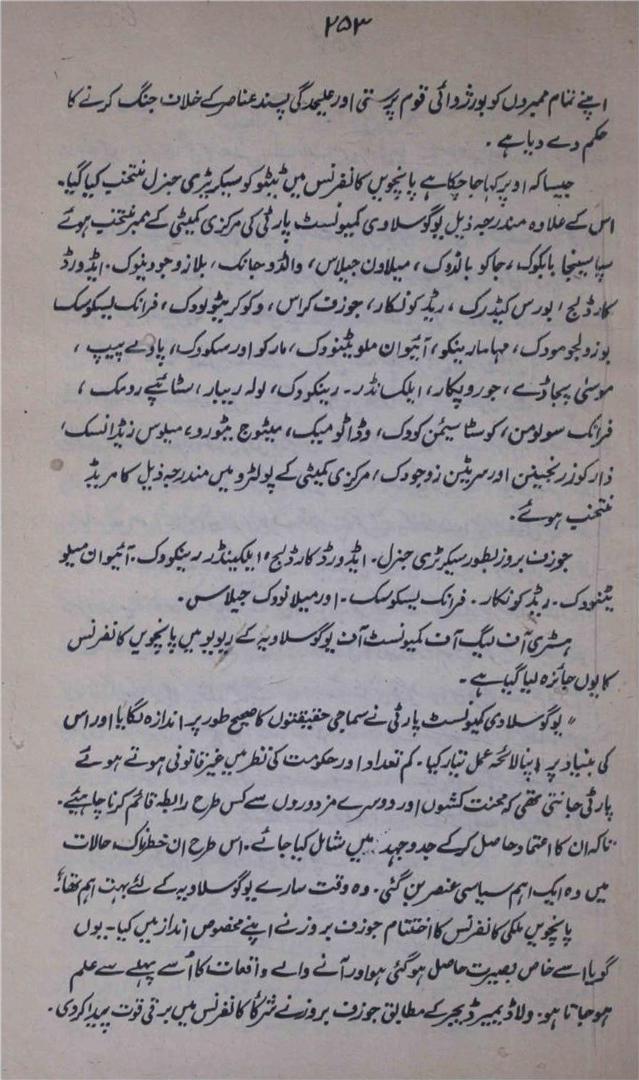 ۲۵۳
اپنے تمام ممبروں کو بورژوائی قوم پرستی اور علیحدگی پسند عناصر کے خلاف جنگ کرنے کا
حکم دے دیا ہے ۔
جیسا کہ اوپر کہا جا چکا ہے پانچویں کانفرنس میں ٹیٹو کو سیکریٹری جنرل منتخب کیا گیا۔
اس کے علاوہ مندرجہ ذیل یوگوسلاوی کمیونسٹ پارٹی کی مرکزی کمیٹی کے ممبر منتخب ہوئے
سپاسینجا بابکوک، جاکو بالڈوک، میلاون جیلاس، والڈو جانک، بلازوجودینوک۔ ایڈورڈ
کارڈلج، بورس کیڈرک، ریڈکونکار، جوزف کراس، وکوکرمیٹولودک، فرانک لیسکوسک
بوزولجومودک، مہامارینکو، آئیوان ملوٹینووک، مارکو اورسکودک، پادلے پیپ،
موسیٰ پجاڈے، جوروپکار، ایلکسانڈر۔ رینکووک، لولہ ریبار، سٹانسچے رومک،
فرانک سولومن، کوسٹا سیمئن کووک، وڈاٹومیک، میٹوج ٹیٹورو، میلوس زیڈانسک،
ڈارکوزرنجینن اور سریٹین زوجووک، مرکزی کمیٹی کے پولٹرو میں مندرجہ ذیل کامریڈ
منتخب ہوئے۔
جوزف بروز بطور سیکرٹری جنرل۔ ایڈورڈ کارڈلج، ایلیکینڈر رینکووک۔ آئیوان میلو
ٹینووک۔ ریڈکونکار۔ فرانک لیسکوسک۔ اور میلانووک جیلاس۔
ہسٹری آف لیگ آف کمیونسٹ آف یوگوسلاویہ کے ریویو میں پانچویں کانفرنس
کا یوں جائزہ لیا گیا ہے۔
"یوگوسلاوی کمیونسٹ پارٹی نے سماجی حقیقتوں کا صحیح طور پر اندازہ لگایا اور اس
کی بنیاد پر اپنا لائحہ عمل تیار کیا۔ کم تعداد اور حکومت کی نظر میں غیر قانونی ہوتے ہوئے
پارٹی جانتی تھی کہ محنت کشوں اور دوسرے مزدوروں سے کس طرح رابطہ قائم کرنا چاہیئے۔
تاکہ ان کا اعتماد حاصل کر کے جدوجہد میں شامل کیا جائے۔ اس طرح ان خطرناک حالات
میں وہ ایک اہم سیاسی عنصر بن گئی۔ وہ وقت سارے یوگوسلاویہ کے لئے بہت اہم تھا"۔
پانچویں ملکی کانفرنس کا اختتام جوزف بروز نے اپنے مخصوص انداز میں کیا۔ یوں
گویا اسے خاص بصیرت حاصل ہو گئی ہو اور آنے والے واقعات کا اُسے پہلے سے علم
ہو جاتا ہو۔ ولاڈیمیر ڈیجر کے مطابق جوزف بروز نے شرکا کانفرنس میں برقی قوت پیدا کر دی۔